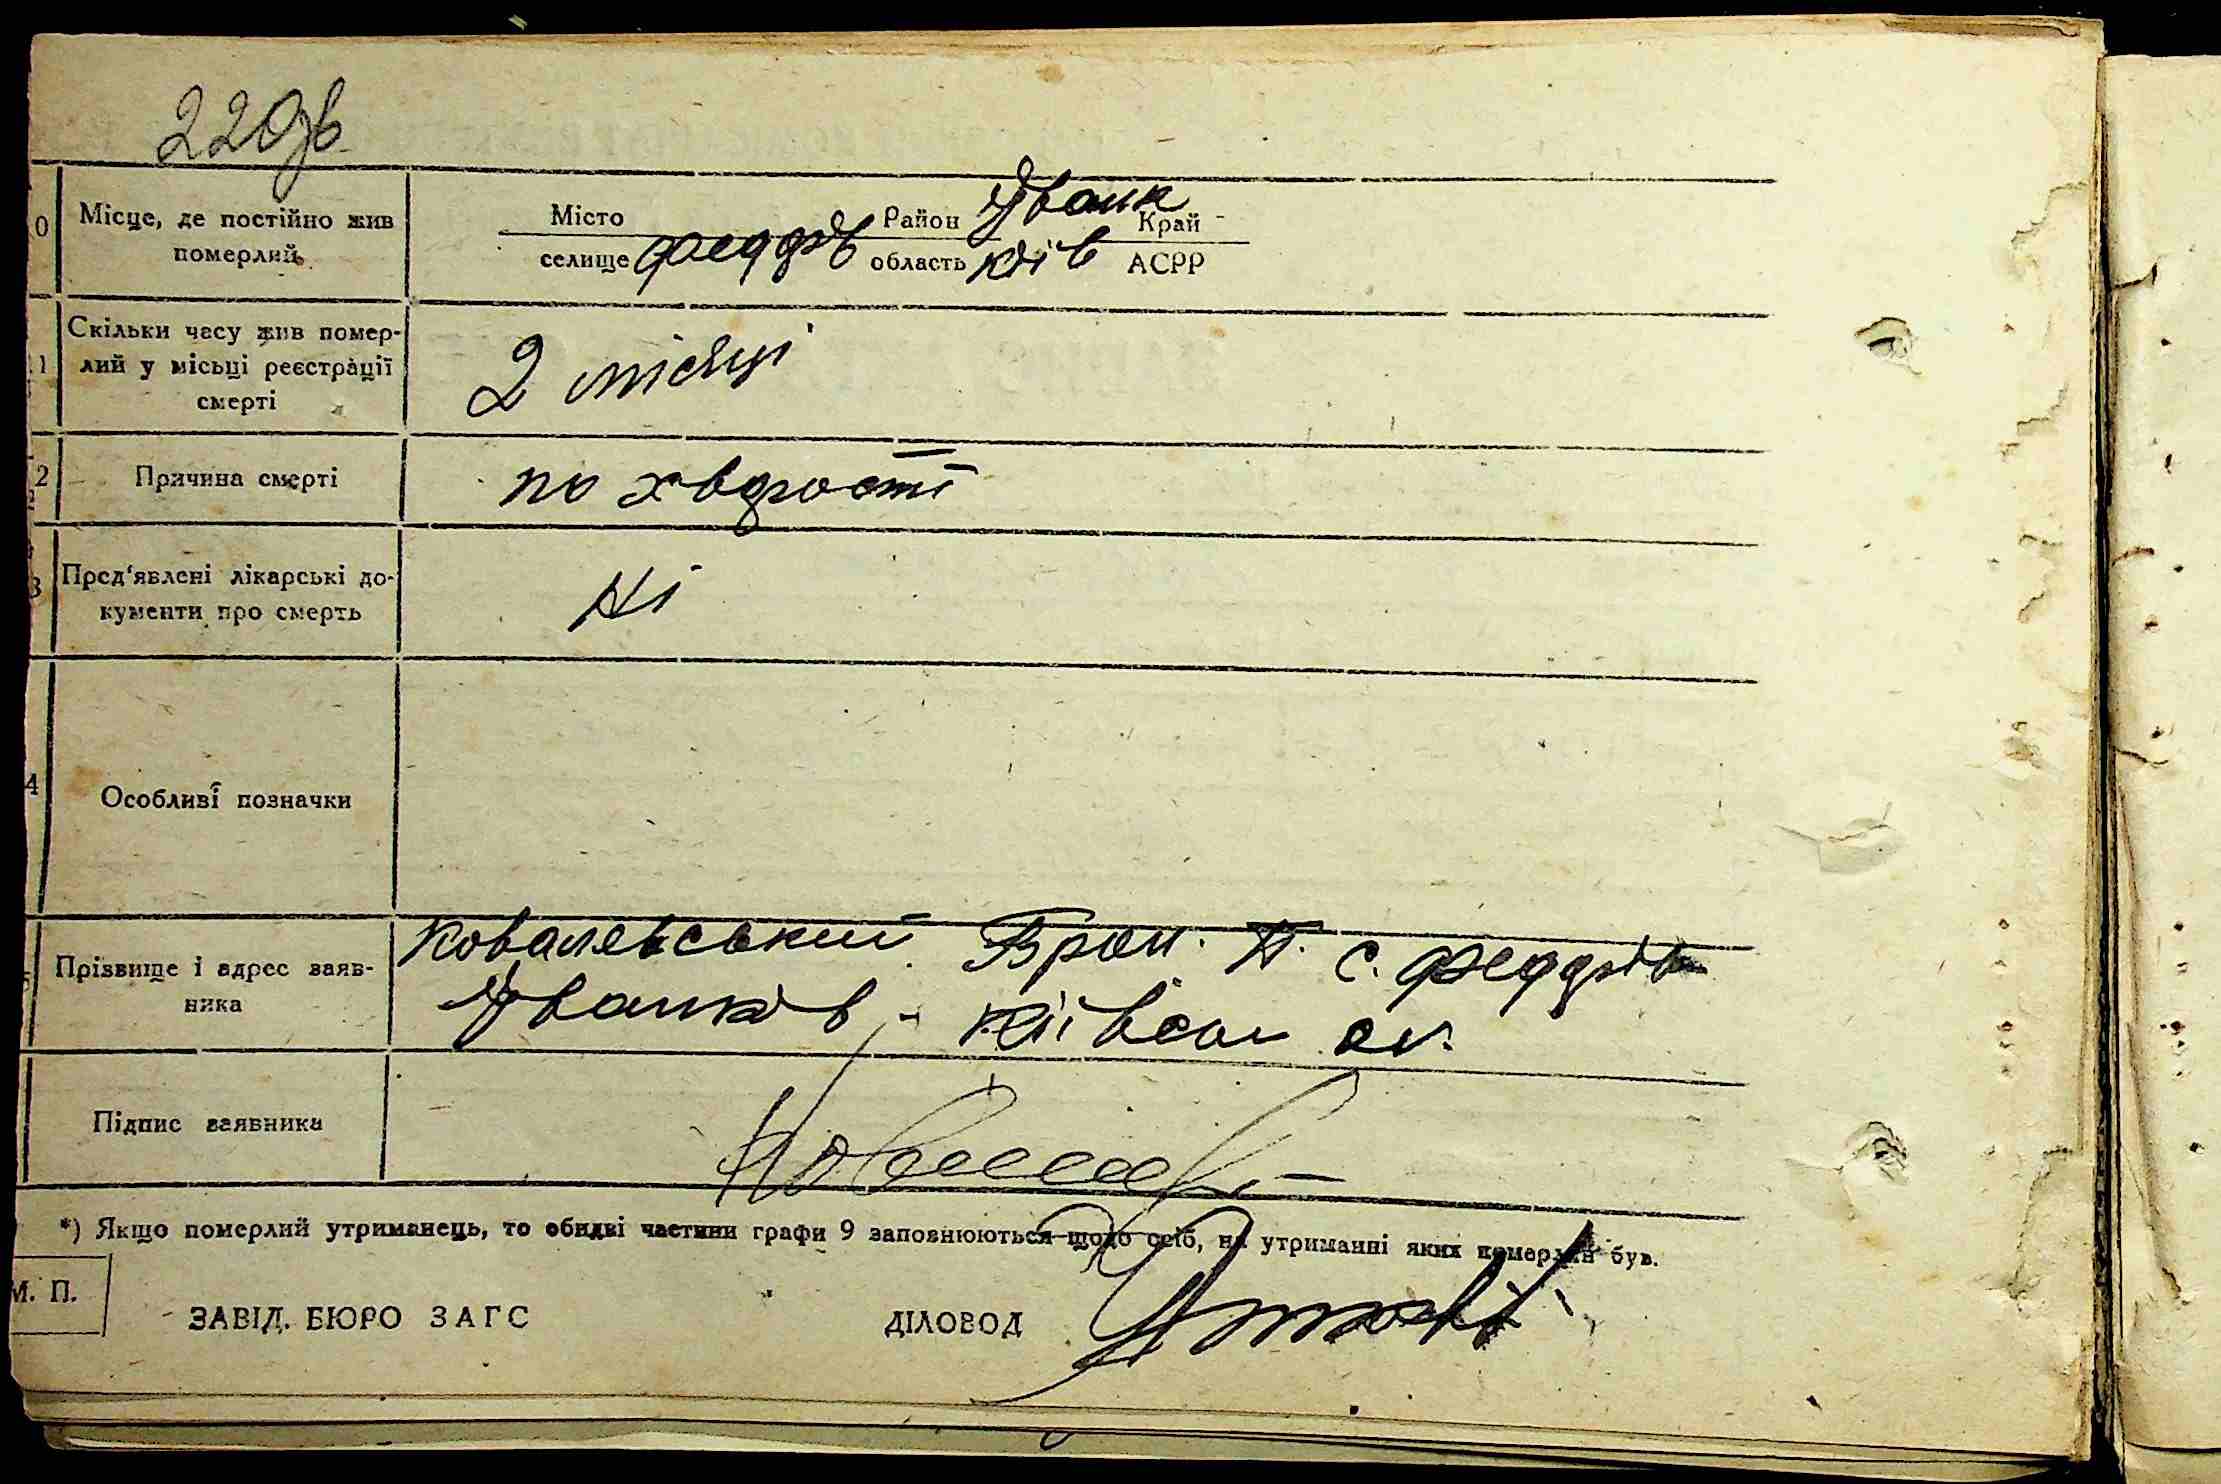 220зв
10 Місце, де постійно жив померлий
Місто Район Іванк Край -
селище Феддрів область Київ АСРР
11 Скільки часу жив помер-
лий у місьці реєстрації
смерті
2 місяці
12 Причина смерті
по хвдрості
Пред'явлені лікарські до-
кументи про смерть
Ні
Особливі позначки
Прізвище і адрес заяв-
ника
Ковалевський Брон. П. с. Феддрів
Іванків - Київсой
Підпис заявника
*) Якщо померлий утриманець, то обидві частини графи 9 заповнюються щодо осіб, на утриманні яких померлий був.
М. П.
ЗАВІД. БЮРО ЗАГС ДІЛОВОД